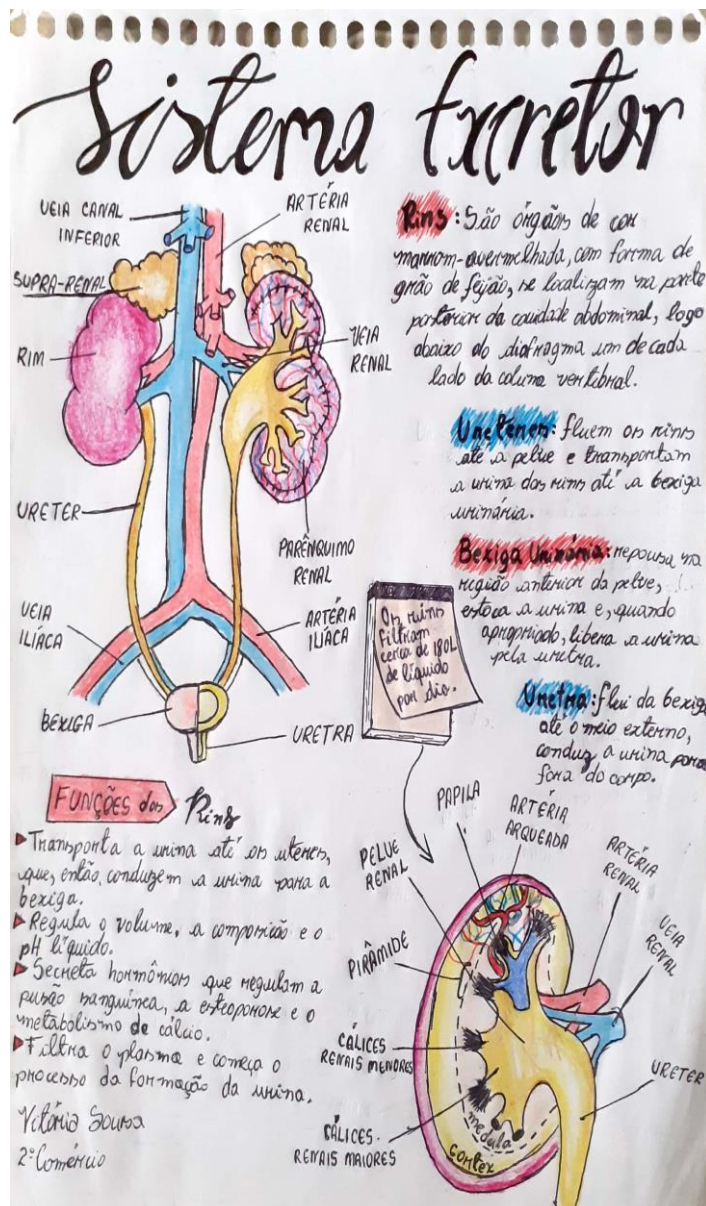 Sistema Excretor
VEIA CANAL
INFERIOR
ARTÉRIA
RENAL
SUPRA-RENAL
RIM
VEIA
RENAL
URETER
PARÊNQUIMO
RENAL
VEIA
ILÍACA
ARTÉRIA
ILÍACA
BEXIGA
URETRA
Rins: São órgãos de cor
marrom-avermelhada, com forma de
grão de feijão, se localizam na parte
posterior da cavidade abdominal, logo
abaixo do diafragma um de cada
lado da coluna vertibral.
Ureteres: fluem os rins
até a pelve e transportam
a urina dos rins até a bexiga
urinária.
Bexiga Urinária: repousa na
região anterior da pelve,
estoca a urina e, quando
apropriado, libera a urina
pela uretra.
Uretra: flui da bexiga
até o meio externo,
conduz a urina para
fora do corpo.
Os rins
filtram
cerca de 180L
de líquido
por dia.
FUNÇÕES dos Rins
Transporta a urina até os uteres,
que, então, conduzem a urina para a
bexiga.
Regula o volume, a composição e o
pH líquido.
Secreta hormônios que regulam a
pressão sanguínea, a esteoporose e o
metabolismo de cálcio.
Filtra o plasma e começa o
processo da formação da urina.
Vitória Sousa
2º Comércio
PAPILA
ARTÉRIA
ARQUEADA
PELVE
RENAL
ARTÉRIA
RENAL
VEIA
RENAL
PIRÂMIDE
CÁLICES
RENAIS MENORES
URETER
CÁLICES
RENAIS MAIORES
medula
cortex